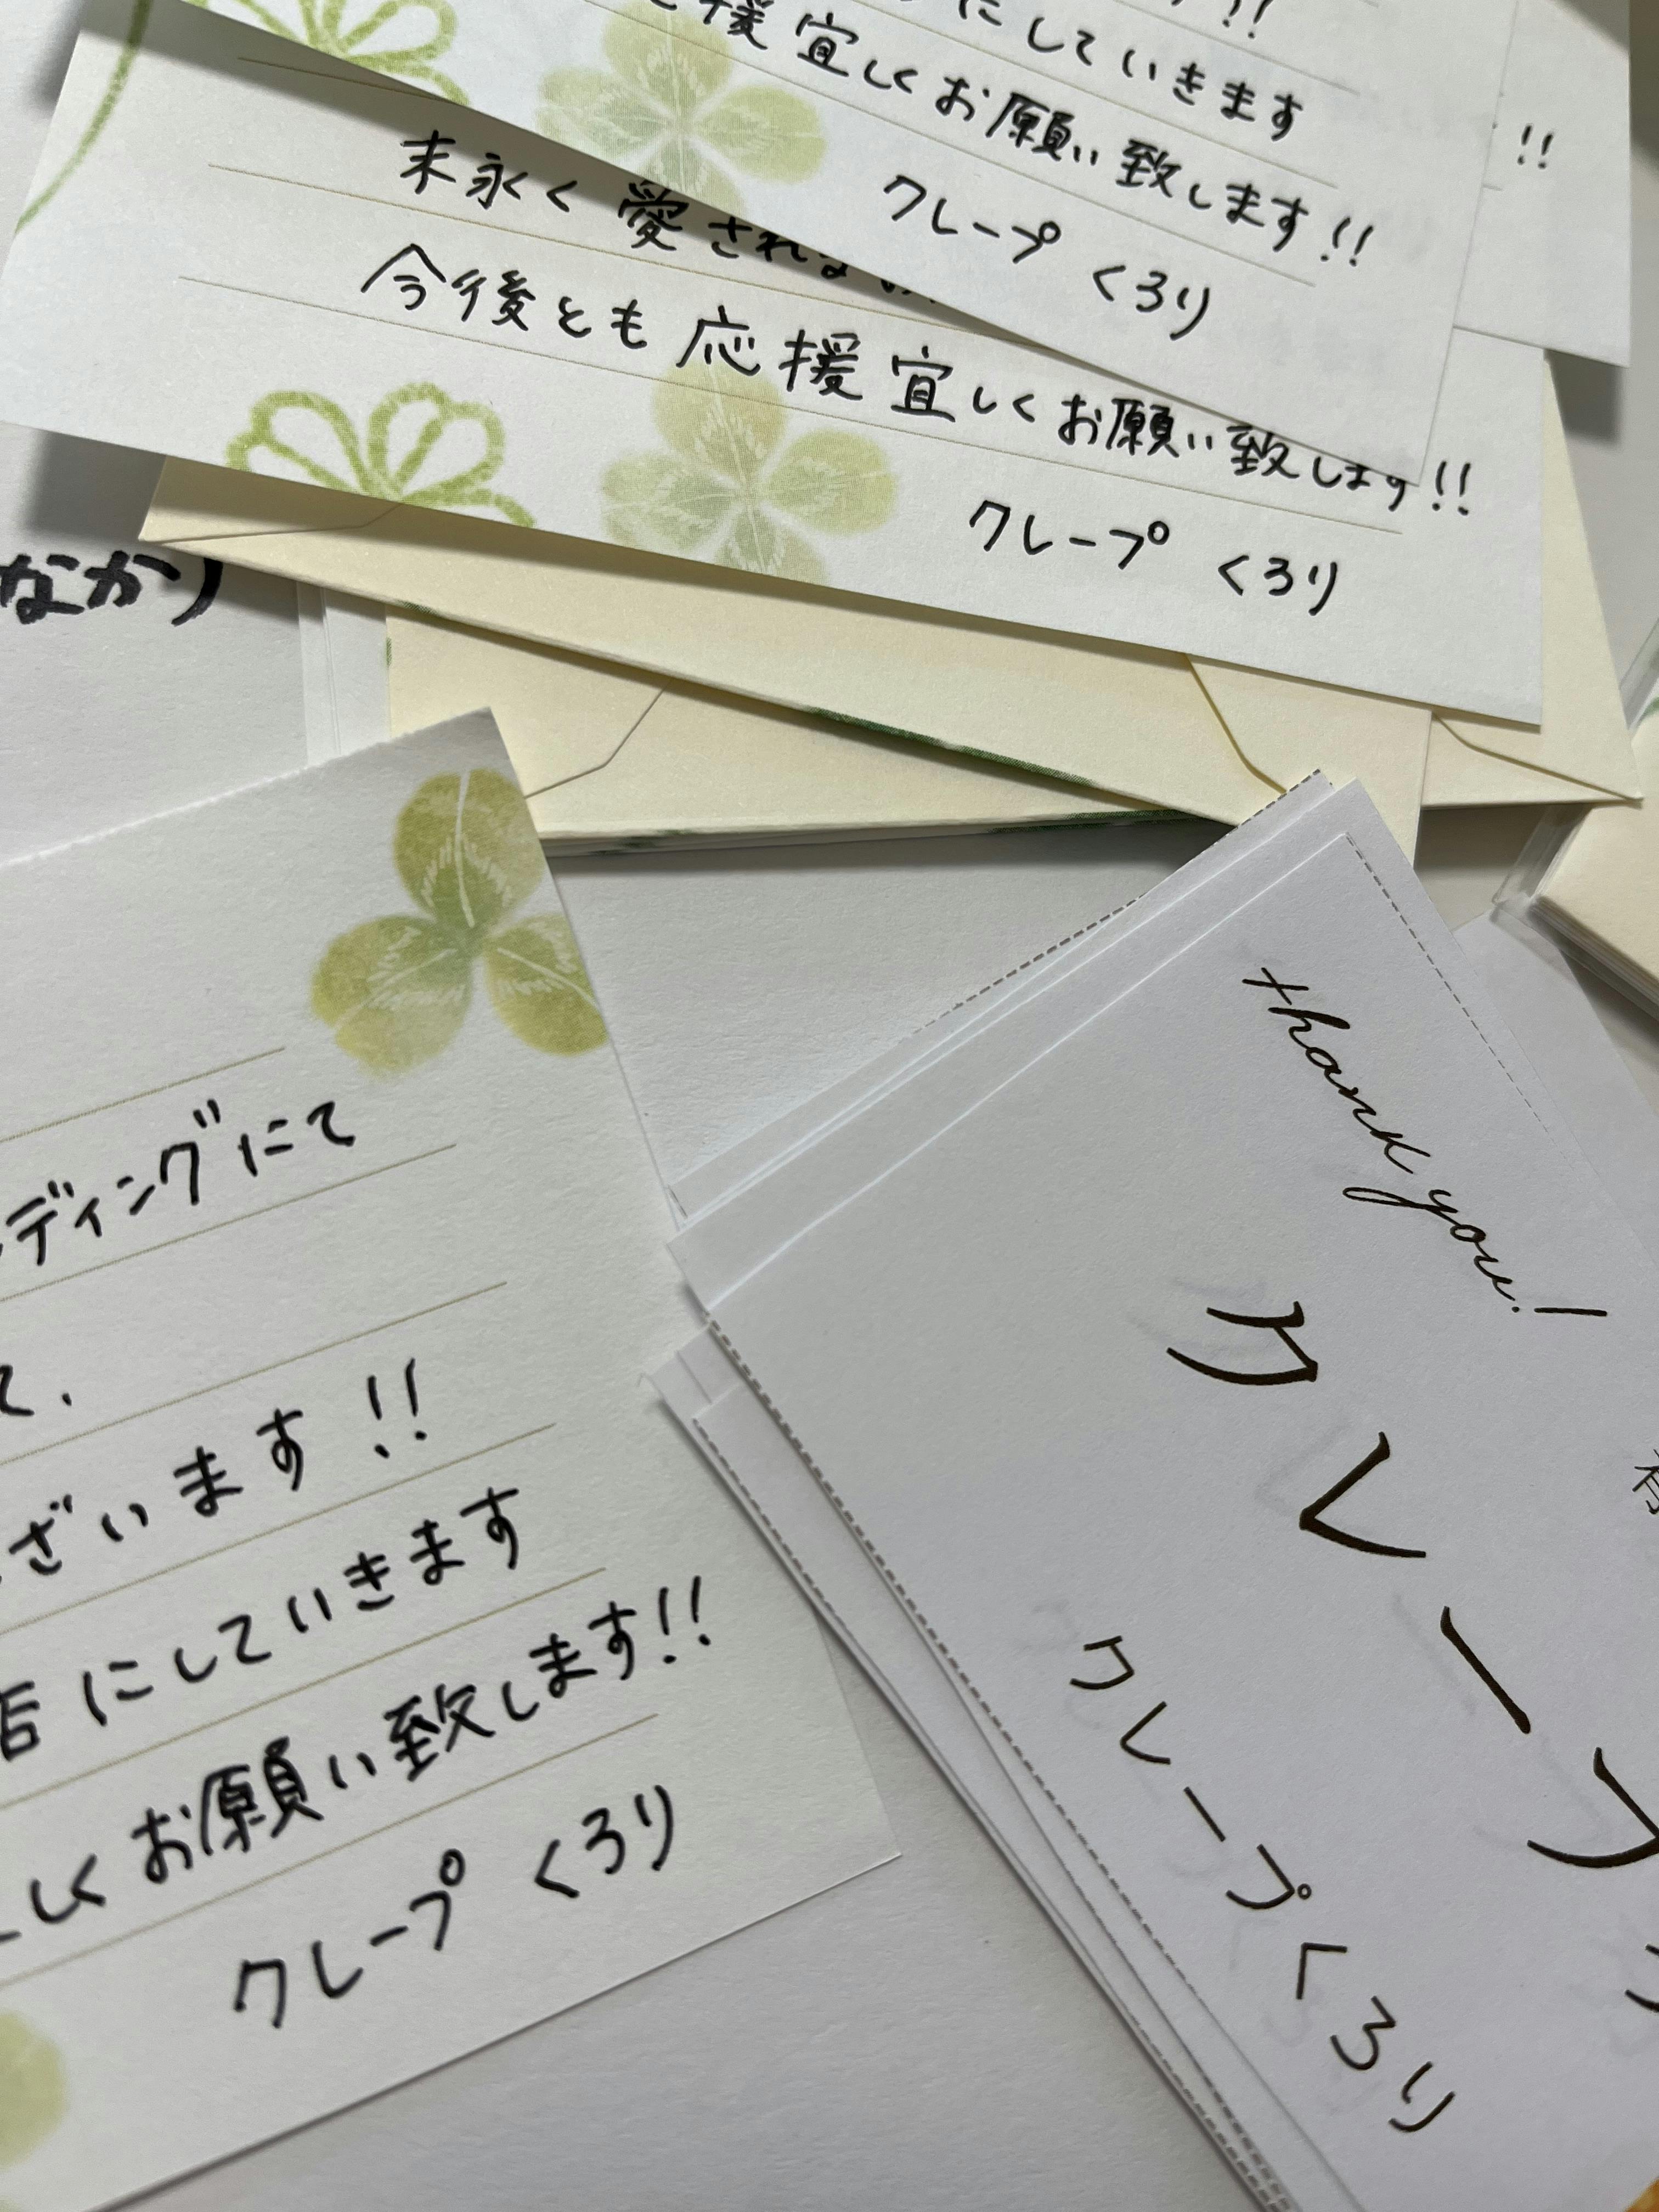 !!
にしていきます
援宜しくお願い致します!!
クレープ くろり
!!
末永く愛され
今後とも応援宜しくお願い致します!!
クレープ くろり
なかり
ディングにて
て.
ざいます!!
店にしていきます
しくお願い致します!!
クレープ くろり
thank you!
クレープ
クレープくろり